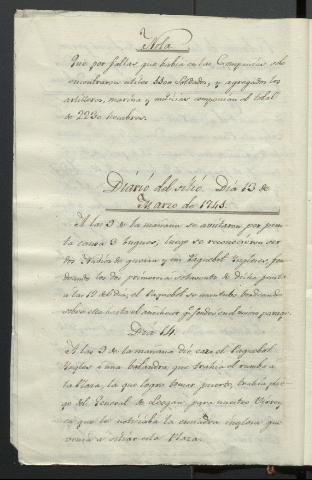 Nota
Que por faltas que habia en las Compañias solo
encontraron utiles 1100 Soldados, y agregados los
artilleros, marina y milicias componian el total
de 2230 hombres.
Diario del sitio. Dia 13 de
Marzo de 1741.
A las 9 de la mañana se avistaron por pun-
ta canoa 3 buques, luego se reconocieron ser
dos Navios de guerra y un Paquebot Yngleses, fon-
deando los dos primeros á sotavento de dicha punta
a las 12 del dia; el Paquebot se mantubo bordeando
sobre ella hasta el anochecer qe. fondeó en el mismo parage.
Dia 14.
A las 9 de la mañana dió caza el Paquebot
Yngles á una balandra que trahia el rumbo a
la Plaza, la que logro tomar puerto, trahia plie-
go del General de Leogan, para nuestro Virrey
en que le noticiaba la esquadra inglesa que
venia a sitiar esta Plaza.